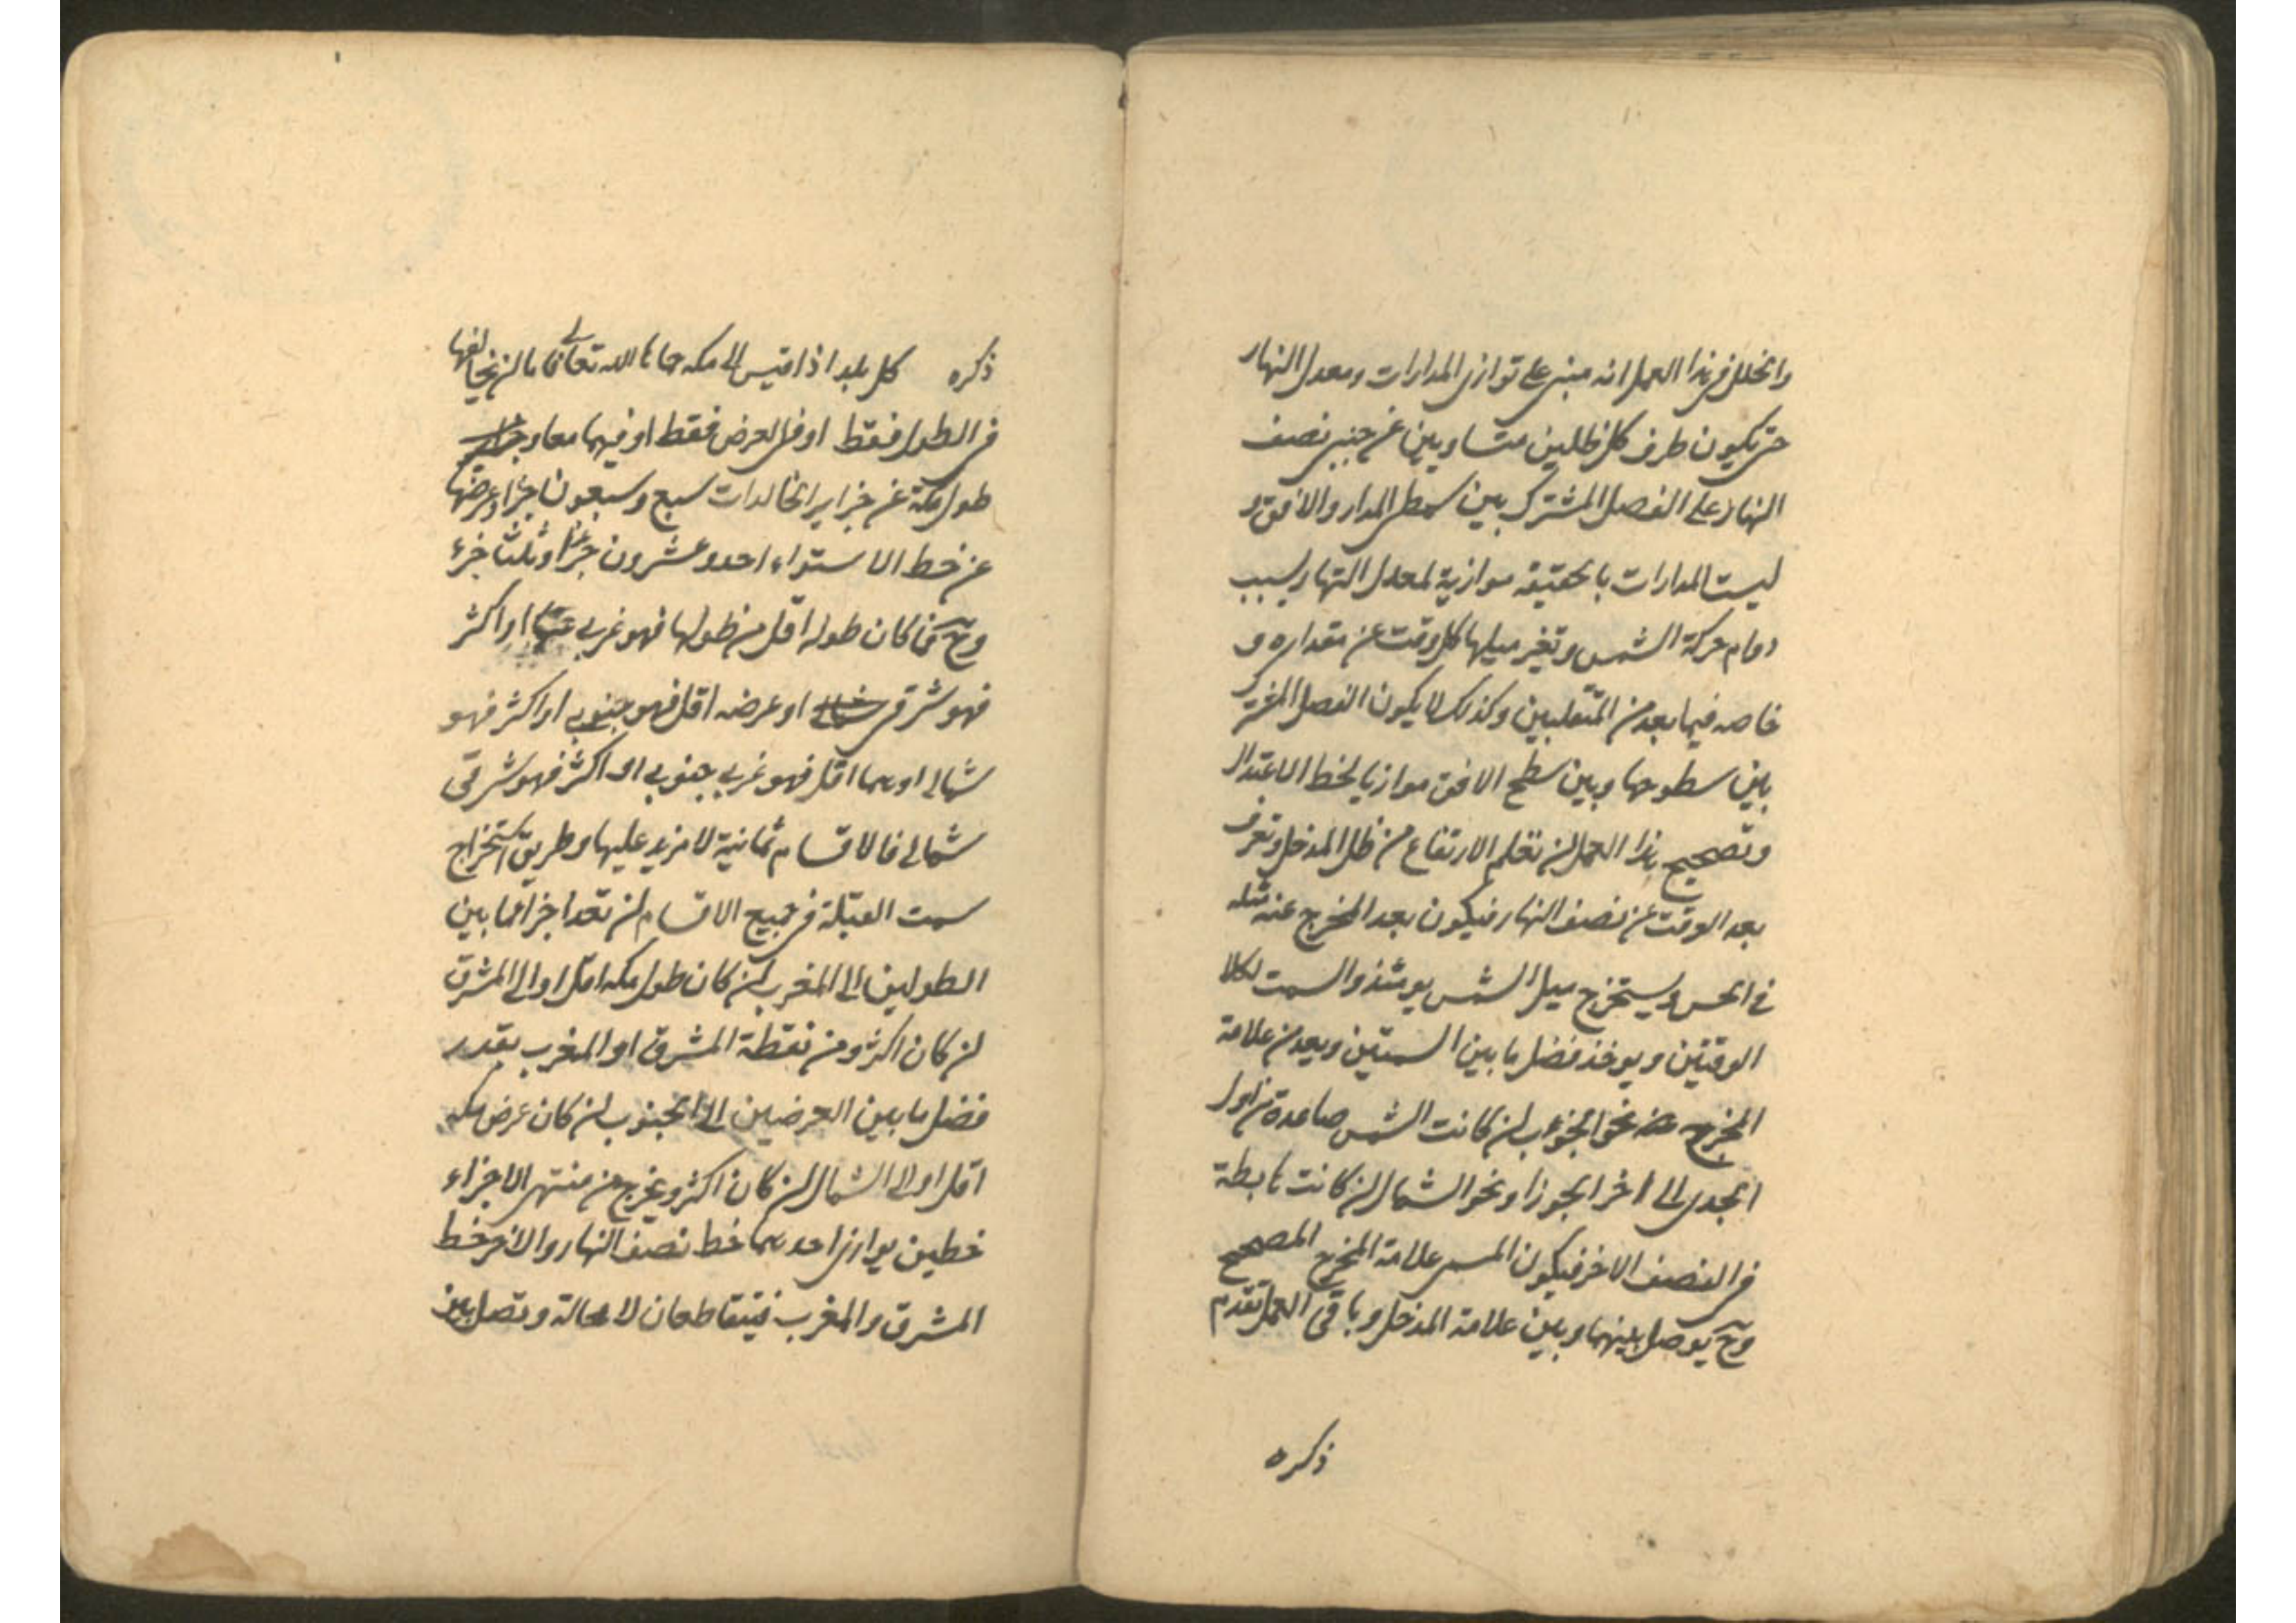 والخلل في هذا العمل انه مبنى على توازى المدارات ومعدل النهار
حتى يكون طرف كل ظلين متساويين عن جنبي نصف
النهار على الفصل المشترك بين سطحى المدار والافق و
ليست المدارات بالحقيقة موازية لمعدل النهار بسبب
دوام حركة الشمس وتغير ميلها كل وقت عن مقداره و
خاصه فيما بعد من المنقلبين وكذلك لا يكون الفصل المشترك
بين سطوحها وبين سطح الافق موازيا لخط الاعتدال
وتصحيح هذا العمل ان تعلم الارتفاع من ظل المدخل وتعرف
بعد الوقت عن نصف النهار فيكون بعد المخرج عنه مثله
في الحس ويستخرج ميل الشمس يومئذ والسمت لكلا
الوقتين ويوخذ فضل ما بين السمتين ويعد من علامة
المخرج نحو الجنوب ان كانت الشمس صاعدة من اول
الجدى الى اخر الجوزا ونحو الشمال ان كانت هابطة
في النصف الاخر فيكون علامة المخرج المصحح
وح يوصل بينهما وبين علامة المدخل وباقى العمل تقدم
ذكره
ذكره كل بلد اذا قيس الى مكه حماها الله تعالى فاما ان يخالفها
في الطول فقط او في العرض فقط او فيهما معا
طول مكة عن جزاير الخالدات سبع وسبعون جزا وعرضها
عن خط الاستواء احد وعشرون جزءا وثلثا جزء
وح فما كان طوله اقل من طولها فهو غربي عنها او اكثر
فهو شرقى او عرضه اقل فهو جنوبي او اكثر فهو
شمالى او هما اقل فهو غربي جنوبي او اكثر فهو شرقى
شمالى فالاقسام ثمانية لا مزيد عليها وطريق استخراج
سمت القبلة في جميع الاقسام ان تعد اجزا ما بين
الطولين الى المغرب ان كان طول مكه اقل او الى المشرق
ان كان اكثر ومن نقطة المشرق او المغرب بقدر
فضل ما بين العرضين الى الجنوب ان كان عرض مكه
اقل او الى الشمال ان كان اكثر ويخرج من منتهى الاجزاء
خطين يوازى احدهما خط نصف النهار والاخر خط
المشرق والمغرب فيتقاطعان لا محالة وتصل بين